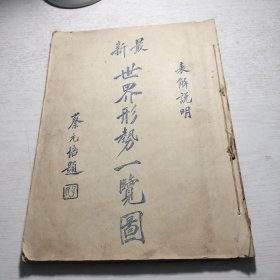 表解說明
最新
世界形勢一覽圖
蔡元培題